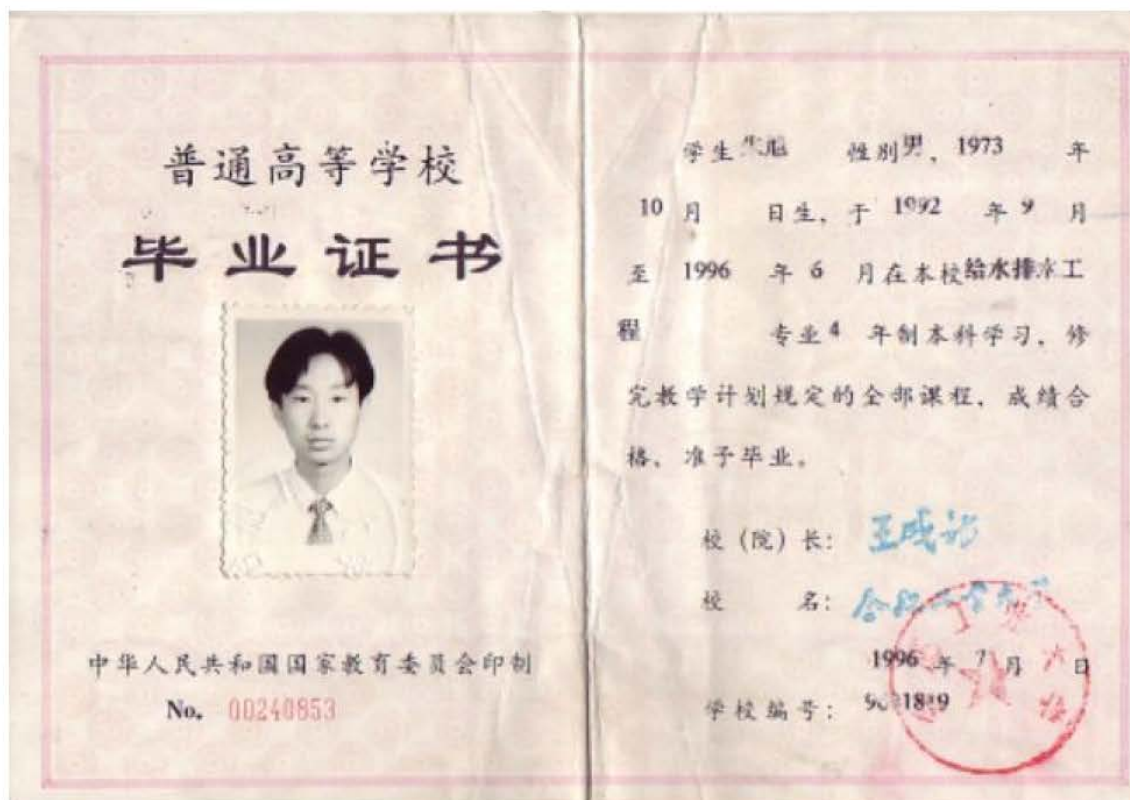 普通高等学校
毕业证书
中华人民共和国国家教育委员会印制
No. 00240853
学生 性别男、1973 年
10 月 日生，于 1992 年 9 月
至 1996 年 6 月在本校给水排水工
程 专业 4 年制本科学习，修
完教学计划规定的全部课程，成绩合
格，准予毕业。
校（院）长：
校 名：
1996 年 7 月 日
学校编号：